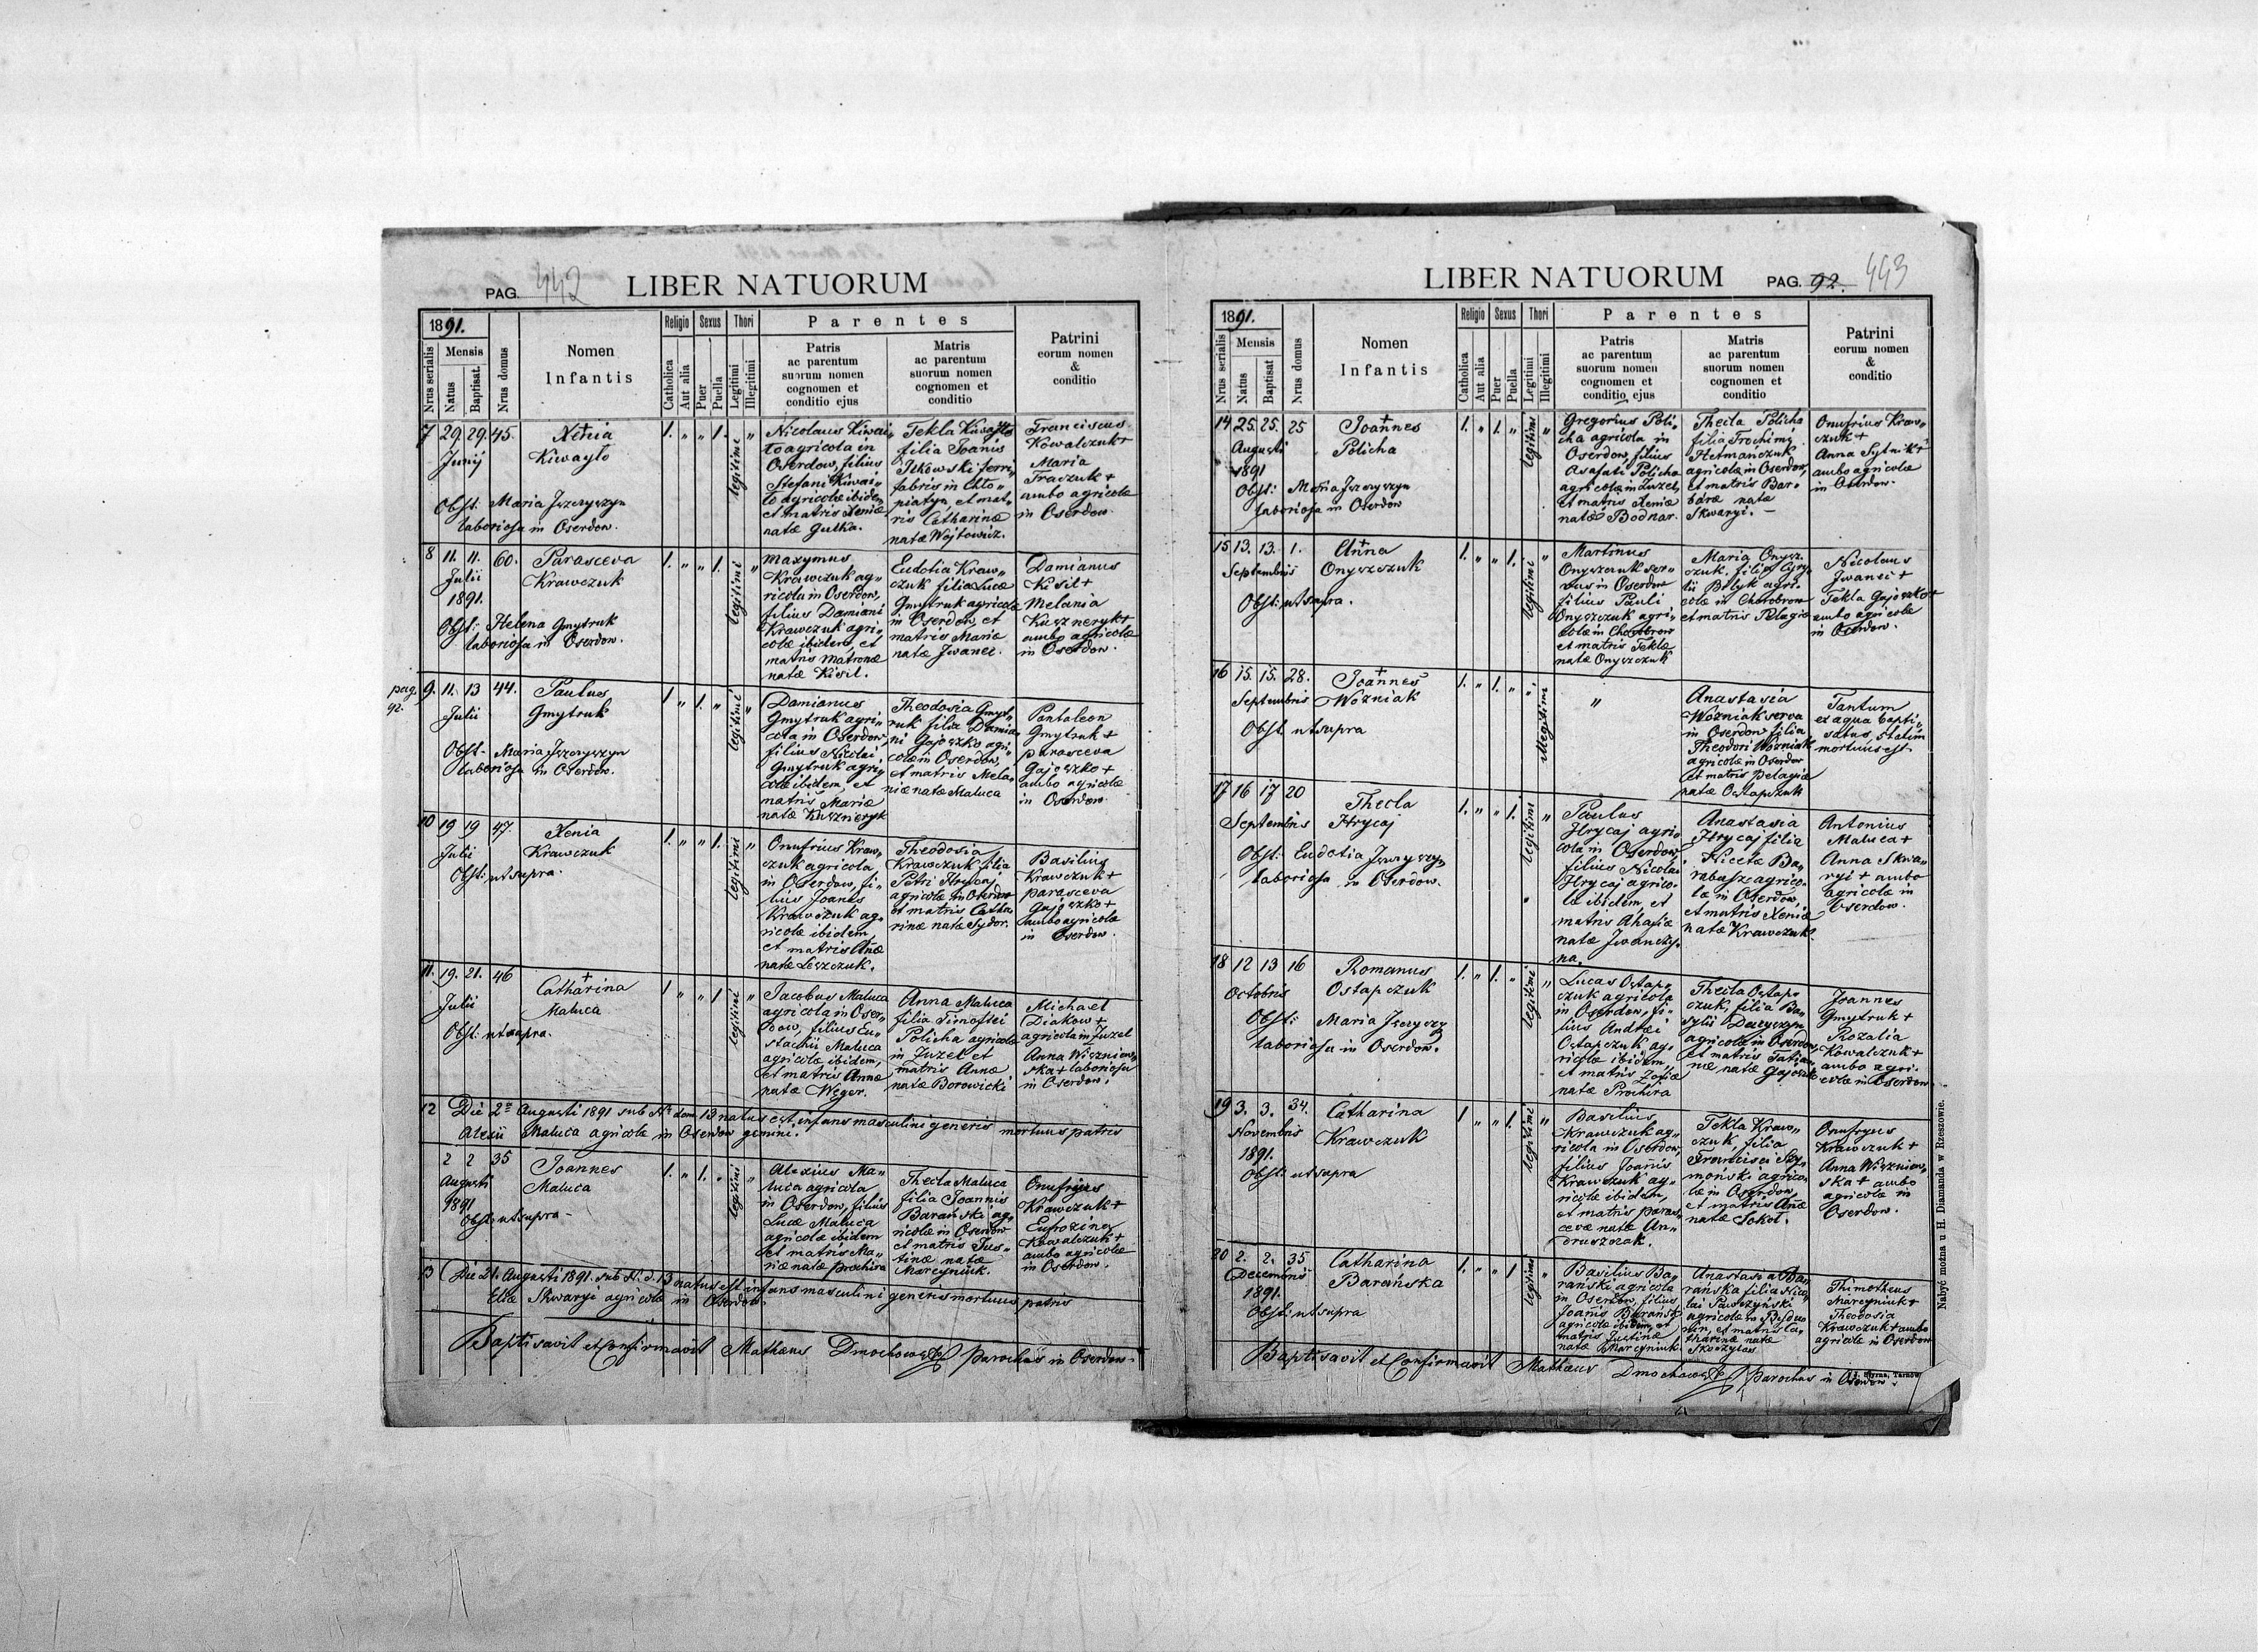 PAG. 442 LIBER NATUORUM
1891.
Nrus serialis
Mensis
Natus
Baptisat.
Nrus domus
Nomen
Infantis
Religio
Catholica
Aut alia
Sexus
Puer
Puella
Thori
Legitimi
Illegitimi
Parentes
Patris
ac parentum
suorum nomen
cognomen et
conditio ejus
Matris
ac parentum
suorum nomen
cognomen et
conditio
Patrini
eorum nomen
&
conditio
7 29. 29. 45.
Junij
Xenia
Kiwayło
Obst. Maria Jszczyszyn
laboriosa in Oserdow.
1. " " 1. legitimi "
Nicolaus Kiwai„
ło agricola in
Oserdow, filius
Stefani Kiwai„
ło agricolæ ibidem
et matris Xeniæ
natæ Gutka.
Tekla Kiwayło
filia Joanis
Iłkowski ferri„
fabris in Chło„
piatyn, et mat„
ris Catharinæ
natæ Wojtowicz.
Franciscus
Kowalczuk +
Maria
Fraczuk +
ambo agricolæ
in Oserdow.
8 11. 11. 60.
Julii
1891.
Parasceva
Krawczuk
Obst: Helena Gmytruk
laboriosa in Oserdow.
1. " " 1. legitimi "
Maxymus
Krawczuk ag„
ricola in Oserdow,
filius Damiani
Krawczuk agri„
colæ ibidem, et
matris Matronæ
natæ Kisil.
Eudotia Kraw„
czuk filia Lucæ
Gmytruk agricolæ
in Oserdow, et
matris Mariæ
natæ Jwanec.
Damianus
Kisil +
Melania
Kuszneryk +
ambo agricolæ
in Oserdow.
pag.
92.
9. 11. 13 44.
Julii
Paulus
Gmytruk
Obst- Maria Jszczyszyn
laboriosa in Oserdow.
1 " 1. " legitimi "
Damianus
Gmytruk agri„
cola in Oserdow,
filius Nicolai
Gmytruk agri„
colæ ibidem, et
matris Mariæ
natæ Kusznieryk
Theodosia Gmyt„
ruk filia Damia„
ni Gajoszko agri„
colæ in Oserdow,
et matris Mela„
niæ natæ Maluca
Pantaleon
Gmytruk +
Parasceva
Gajoszko +
ambo agricolæ
in Oserdow.
10 19 19 47.
Julii
Xenia
Krawczuk
Obst: ut supra.
1. " " 1. legitimi "
Onufrius Kraw„
czuk agricola
in Oserdow, fi„
lius Joanis
Krawczuk ag„
ricolæ ibidem,
et matris Añæ
natæ Leszczuk.
Theodosia
Krawczuk filia
Petri Hrycaj
agricolæ in Oserdow
et matris Catha„
rinæ natæ Sydor.
Basilius
Krawczuk +
Parasceva
Gajoszko +
ambo agricolæ
in Oserdow.
11. 19. 21. 46
Julii
+
Catharina
Maluca
Obst: ut supra.
1 " " 1. legitimi "
Jacobus Maluca
agricola in Oser„
dow, filius Eu„
stachii Maluca
agricolæ ibidem,
et matris Annæ
natæ Węger.
Anna Maluca
filia Timoftei
Policha agricolæ
in Zuzel et
matris Annæ
natæ Borowicki
Michael
Diakow +
agricola in Zuzel
Anna Wiszniow„
ska + laboriosa
in Oserdow.
12 Die 2a Augusti 1891 sub Nr dom. 13 natus est infans masculini generis mortuus patris
Alexii Maluca agricolæ in Oserdow gemini.
2 2 35
Augusti
1891
Joannes
Maluca
Obst: ut supra -
1. " 1. " legitimi "
Alexius Ma„
luca agricola
in Oserdow, filius
Lucæ Maluca
agricolæ ibidem
et matris Ma„
riæ natæ Prochira
Thecla Maluca
filia Joannis
Barański ag„
ricolæ in Oserdow
et matris Jus„
tinæ natæ
Marcyniuk.
Onufrius
Krawczuk +
Eufrozina
Kowalczuk +
ambo agricolæ
in Oserdow.
13 Die 21. Augusti 1891. sub N. d. 13 natus est infans masculini generis mortuus patris
Eliæ Skwaryi agricolæ in Oserdow.
Baptisavit et Confirmavit Mathæus Dmochowski parochus in Oserdow
LIBER NATUORUM PAG. 92. 443
1891.
Nrus serialis
Mensis
Natus
Baptisat
Nrus domus
Nomen
Infantis
Religio
Catholica
Aut alia
Sexus
Puer
Puella
Thori
Legitimi
Illegitimi
Parentes
Patris
ac parentum
suorum nomen
cognomen et
conditio ejus
Matris
ac parentum
suorum nomen
cognomen et
conditio
Patrini
eorum nomen
&
conditio
14 25. 25. 25
Augusti
1891
+
Joannes
Policha
Obst: Maria Jszczyszyn
laboriosa in Oserdow
1. " 1. " legitimi "
Gregorius Poli„
cha agricola in
Oserdow, filius
Asafati Policha
agricolæ in Zuzel,
et matris Xeniæ
natæ Bodnar.
Thecla Policha
filia Trochimi
Hetmańczuk
agricolæ in Oserdow,
et matris Bar„
baræ natæ
Skwaryi. -
Onufrius Kraw„
czuk +
Anna Sytnik +
ambo agricolæ
in Oserdow.
15 13. 13. 1.
Septembris
+
Anna
Onyszczuk
Obst: ut supra.
1. " " 1. legitimi "
Martinus
Onyszczuk ser„
vus in Oserdow
filius Pauli
Onyszczuk agri„
colæ in Chorobrow
et matris Teklæ
natæ Onyszczuk
Maria Onysz„
czuk, filia Cyry„
lii Bełyk agri„
colæ in Chorobrow
et matris Pelagiæ
Nicolaus
Jwanec +
Tekla Gajoszko +
ambo agricolæ
in Oserdow.
16 15. 15. 28.
Septembris
+
Joannes
Woźniak
Obst. ut supra
1. " 1. " " illegitimi
"
Anastasia
Woźniak serva
in Oserdow filia
Theodori Woźniak
agricolæ in Oserdow
et matris Pelagiæ
natæ Ostapczuk
Tantum
ex aqua bapti„
satus statim
mortuus est.
17 16 17 20
Septembris
Thecla
Hrycaj
Obst: Eudotia Jszczyszyn
laboriosa in Oserdow.
1. " " 1. legitimi "
Paulus
Hrycaj agri„
cola in Oserdow,
filius Nicolai
Hrycaj agrico„
læ ibidem, et
matris Ahafiæ
natæ Jwanczy„
na.
Anastasia
Hrycaj filia
Nicetæ Ba„
rabasz agrico„
læ in Oserdow,
et matris Xeniæ
natæ Krawczuk.
Antonius
Maluca +
Anna Skwa„
ryi + ambo
agricolæ in
Oserdow.
18 12 13 16
Octobris
Romanus
Ostapczuk
Obst: Maria Jszczyszyn
laboriosa in Oserdow.
1. " 1. " legitimi "
Lucas Ostap„
czuk agricola
in Oserdow, fi„
lius Andrei
Ostapczuk ag„
ricolæ ibidem,
et matris Zofiæ
natæ Prochira
Thecla Ostap„
czuk, filia Ba„
sylii Daczyszyn
agricolæ in Oserdow,
et matris Tatia„
næ natæ Gajoszko
Joannes
Gmytruk +
Rozalia
Kowalczuk +
ambo agri„
colæ in Oserdow
19 3. 3. 34.
Novembris
1891.
Catharina
Krawczuk
Obst: ut supra
1 " " 1. legitimi "
Basilius
Krawczuk ag„
ricola in Oserdow,
filius Joañis
Krawczuk ag„
ricolæ ibidem,
et matris Paras„
cevæ natæ An„
druszczak.
Tekla Kraw„
czuk, filia
Francisci Szy„
moński agrico„
læ in Oserdow,
et matris Añæ
natæ Sokoł.
Onufryus
Krawczuk +
Anna Wiszniow„
ska + ambo
agricolæ in
Oserdow.
20 2. 2. 35
Decembris
1891.
Catharina
Barańska
Obst: ut supra
1. " " 1 legitimi "
Basilius Ba„
rański agricola
in Oserdow, filius
Joañis Barański
agricolæ ibidem, et
matris Justinæ
natæ Marcyniuk.
Anastasia Ba„
rańska filia Nico„
lai Pawczyński
agricolæ in
et matris Ca„
tharinæ natæ
Thimotheus
Marcyniuk +
Theodosia
Krawczuk + ambo
agricolæ in Oserdow
Baptisavit et Confirmavit Mathæus Dmochowski parochus in Oserdow.
Nabyć można u H. Diamanda w Rzeszowie.